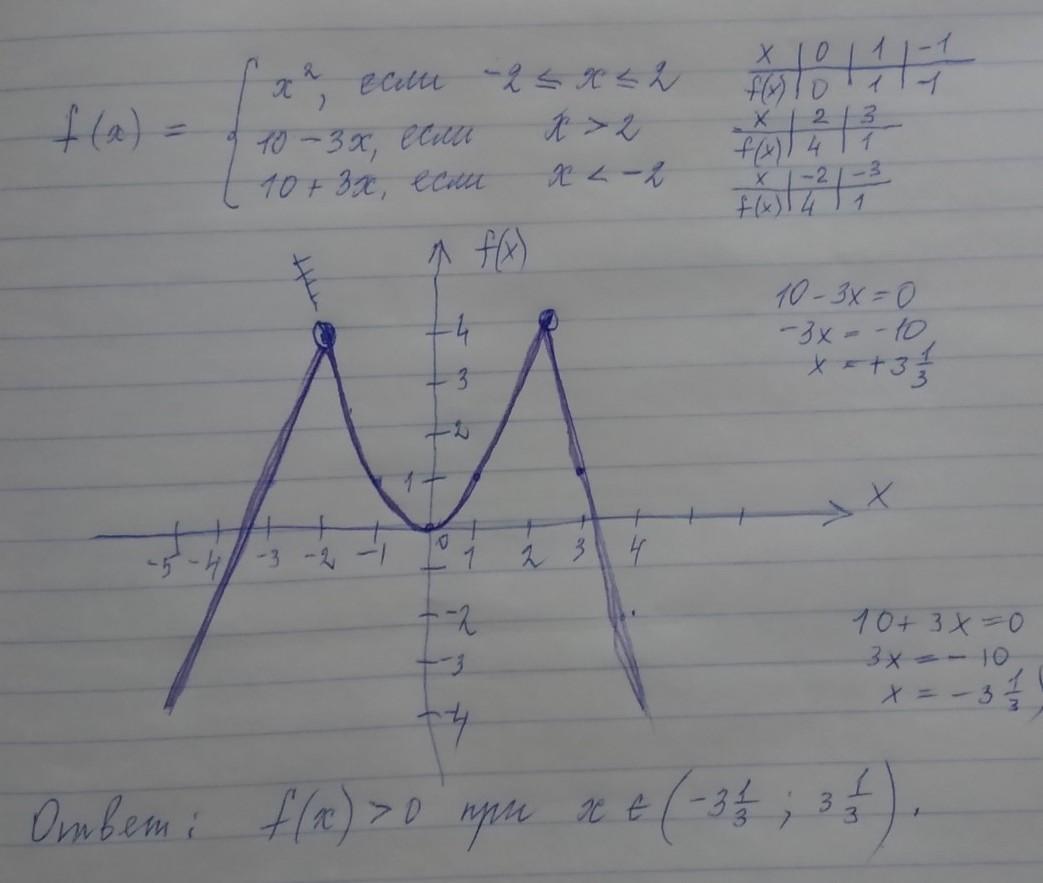 f(x) = { x², если -2 ≤ x ≤ 2
10 - 3x, если x > 2
10 + 3x, если x < -2
x | 0 | 1 | -1
f(x) | 0 | 1 | -1
x | 2 | 3
f(x) | 4 | 1
x | -2 | -3
f(x) | 4 | 1
f(x)
4
3
2
1
x
-5 -4 -3 -2 -1 0 1 2 3 4
-2
-3
-4
10 - 3x = 0
-3x = -10
x = +3 1/3
10 + 3x = 0
3x = -10
x = -3 1/3
Ответ: f(x) > 0 при x ∈ (-3 1/3 ; 3 1/3).